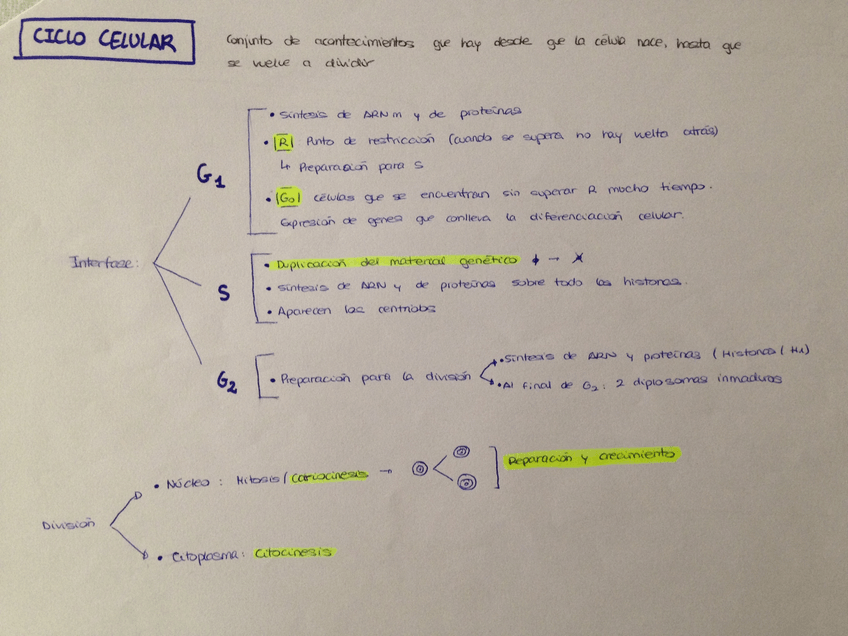 CICLO CELULAR
Conjunto de acontecimientos que hay desde que la célula nace, hasta que
se vuelve a dividir
Interfase:
G1
• Síntesis de ARNm y de proteínas
• |R| Punto de restricción (cuando se supera no hay vuelta atrás)
↳ Preparación para S
• |G0| células que se encuentran sin superar R mucho tiempo.
Expresión de genes que conlleva la diferenciación celular.
S
• Duplicación del material genético
• Síntesis de ARN y de proteínas sobre todo las histonas.
• Aparecen los centriolos
G2
• Preparación para la división
• Síntesis de ARN y proteínas (Histonas (H1)
• Al final de G2: 2 diplosomas inmaduros
División
• Núcleo: Mitosis/Cariocinesis →
Reparación y crecimiento
• Citoplasma: Citocinesis